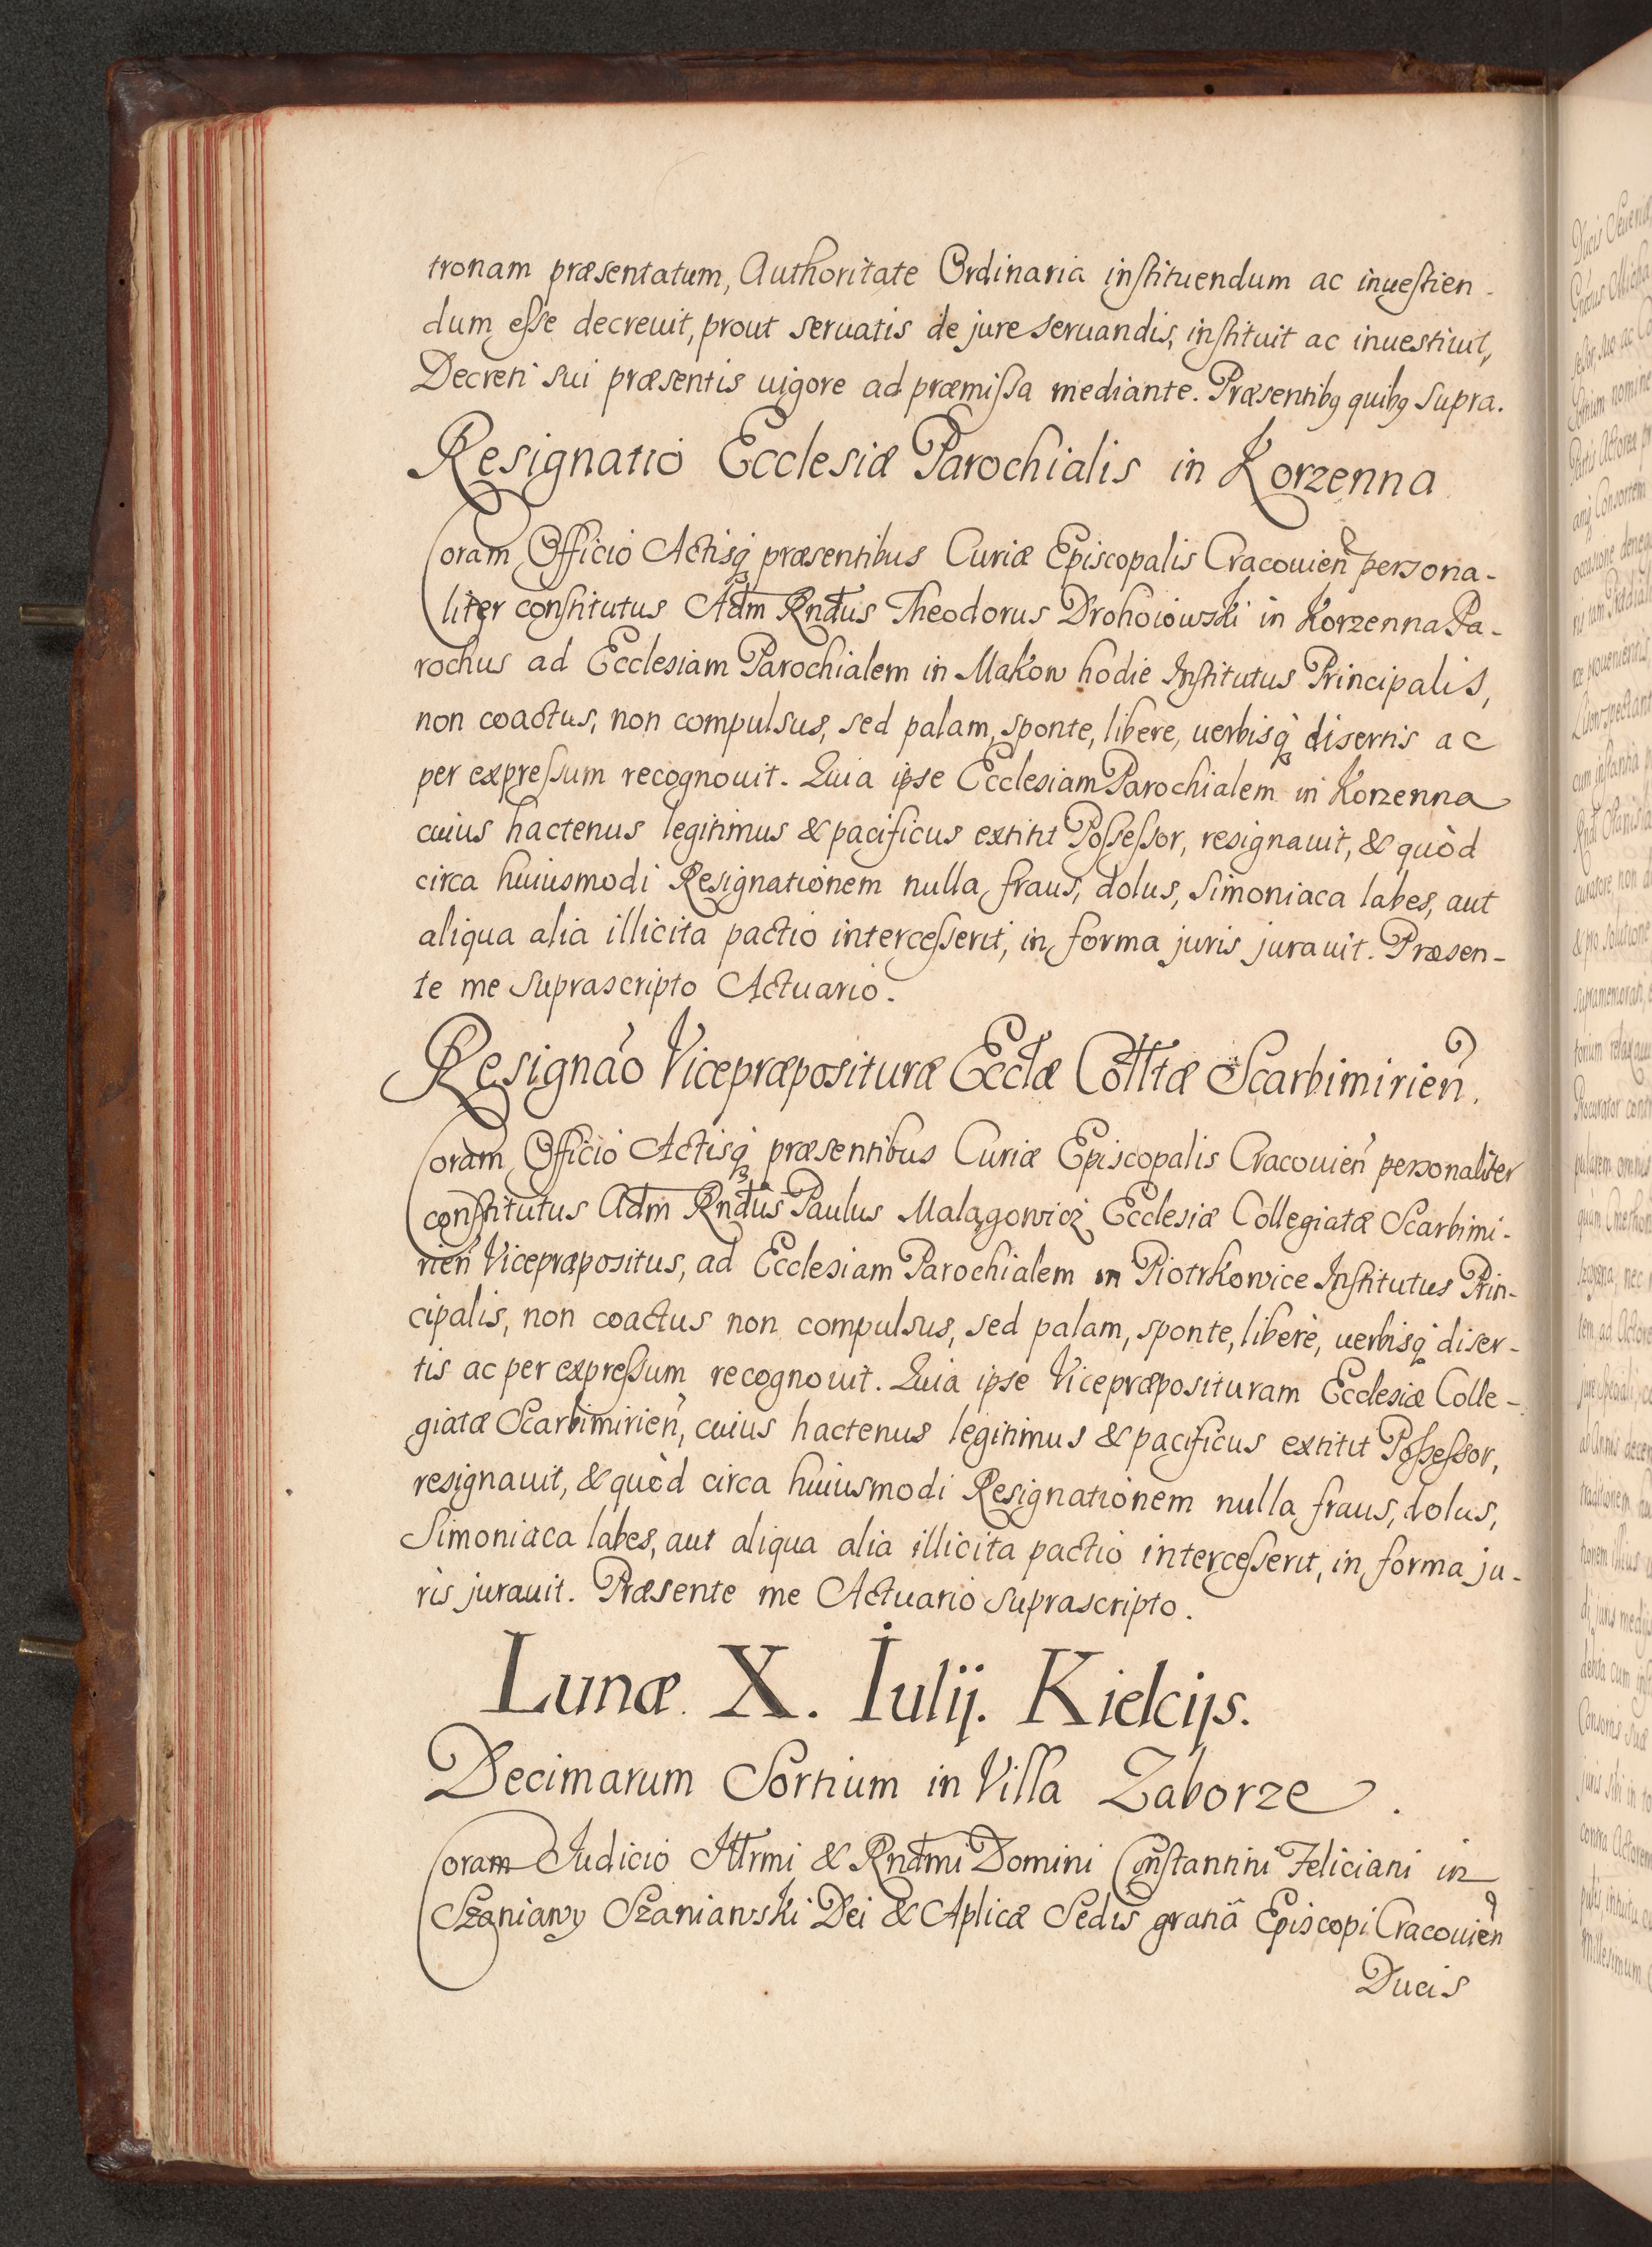 tronam præsentatum, Authoritate Ordinaria instituendum ac inuestien-
dum esse decreuit, prout seruatis de jure seruandis, instituit ac inuestiuit,
Decreti sui præsentis uigore ad præmissa mediante. Præsentibq quibq supra.
Resignatio Ecclesiæ Parochialis in Korzenna
Coram Officio Actisq præsentibus Curiæ Episcopalis Cracouien̄ persona-
liter constitutus Adm Rndus Theodorus Drohoiowski in Korzenna Pa-
rochus ad Ecclesiam Parochialem in Makow hodie Institutus Principalis,
non coactus, non compulsus, sed palam, sponte, libere, uerbisq̀ disertis ac
per expressum recognouit. Quia ipse Ecclesiam Parochialem in Korzenna
cuius hactenus legitimus & pacificus extitit Possessor, resignauit, & quòd
circa huiusmodi Resignationem nulla fraus, dolus, simoniaca labes, aut
aliqua alia illicita pactio intercesserit, in forma juris jurauit. Præsen-
te me suprascripto Actuario.
Resignão Vicepræpositureæ Ecclæ Colltæ Scarbimirien̄.
Coram Officio Actisq præsentibus Curiæ Episcopalis Cracouien̄ personaliter
constitutus Adm Rndus Paulus Malagowicz Ecclesiæ Collegiatæ Scarbimi-
rien̄ Vicepræpositus, ad Ecclesiam Parochialem in Piotrkowice Institutus Prin-
cipalis, non coactus non compulsus, sed palam, sponte, liberè, uerbisq̀ diser-
tis ac per expressum recognouit. Quia ipse Vicepræposituram Ecclesiæ Colle-
giatæ Scarbimirien̄, cuius hactenus legitimus & pacificus extitit Possessor,
resignauit, & quòd circa huiusmodi Resignationem nulla fraus, dolus,
Simoniaca labes, aut aliqua alia illicita pactio intercesserit, in forma ju-
ris jurauit. Præsente me Actuario suprascripto.
Lunæ X. Iulij. Kielcijs.
Decimarum Sortium in Villa Zaborze.
Coram Judicio Illrmi & Rndmi Domini Constantini Feliciani in
Szaniawy Szaniawski Dei & Aplicæ Sedis gratiã Episcopi Cracouien̄
Ducis